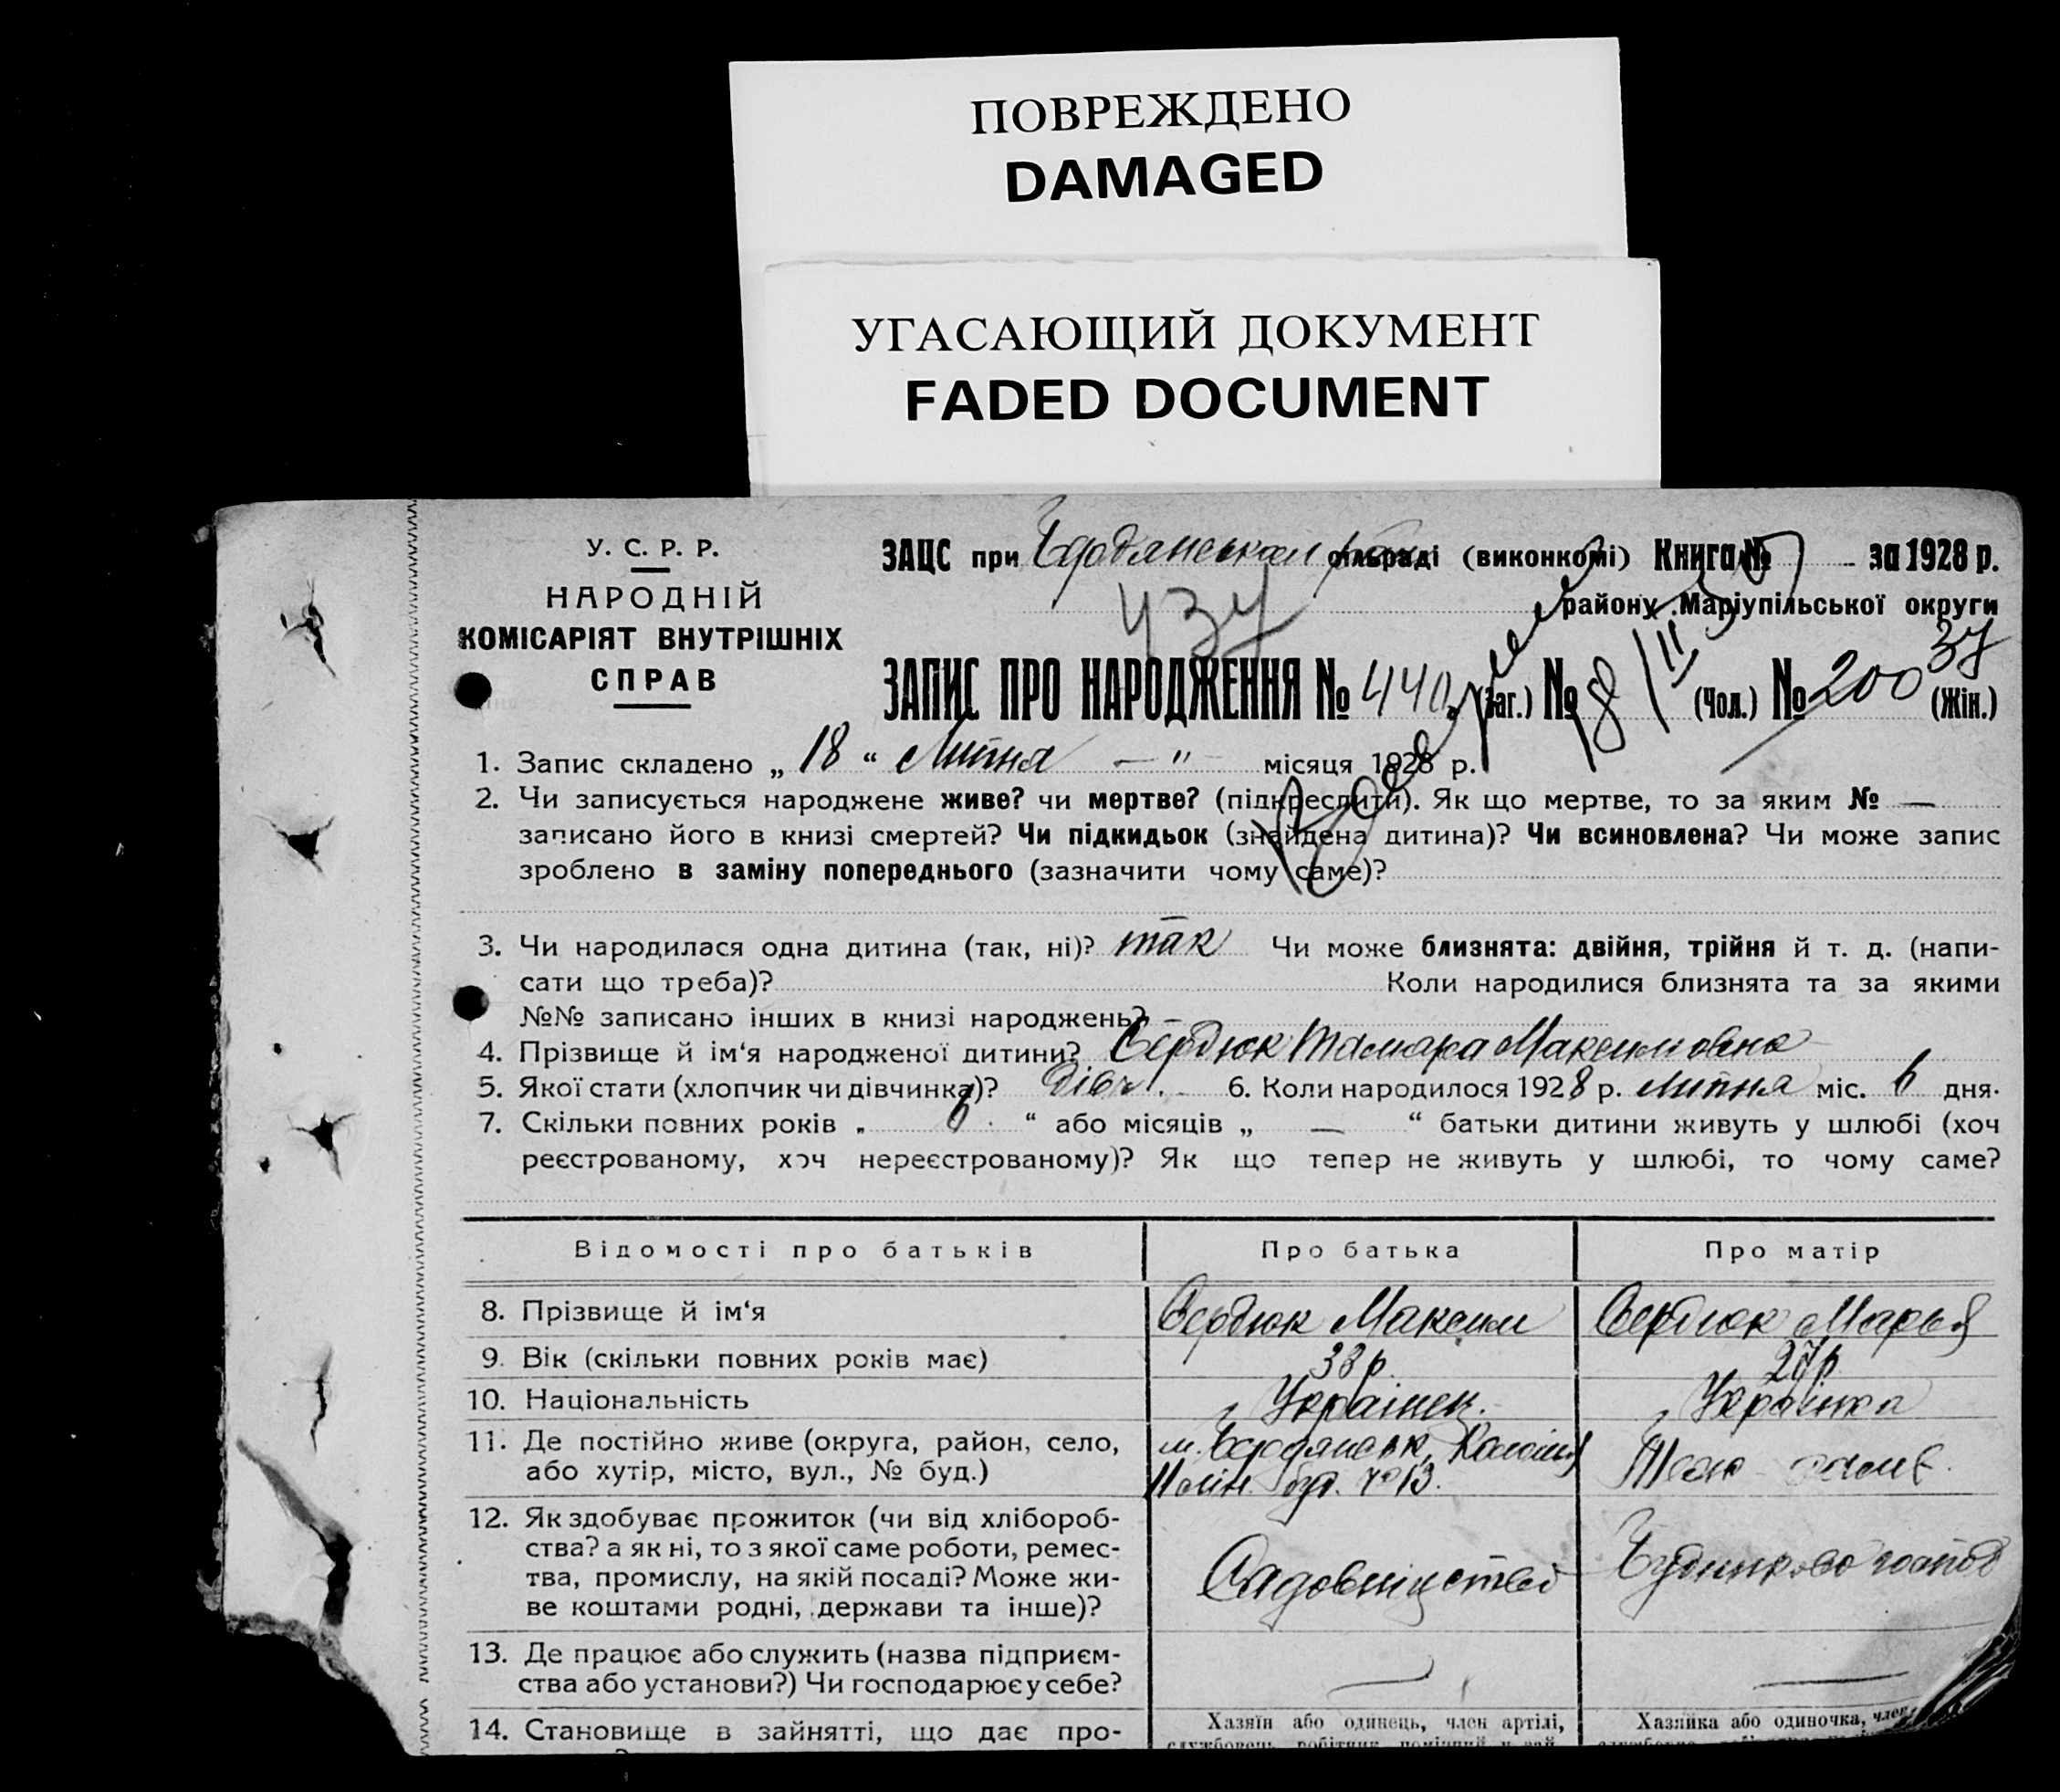 ПОВРЕЖДЕНО
DAMAGED
УГАСАЮЩИЙ ДОКУМЕНТ
FADED DOCUMENT
У. С. Р. Р.
НАРОДНІЙ
КОМІСАРІЯТ ВНУТРІШНІХ
СПРАВ
ЗАЦС при сільраді (виконкомі) Книга № за 1928 р.
району Маріупільської округи
ЗАПИС ПРО НАРОДЖЕННЯ № 440 (заг.) № (Чол.) № 200 (Жін.)
1. Запис складено „ 18 “ Липня — " — місяця 1928 р.
2. Чи записується народжене живе? чи мертве? (підкреслити). Як що мертве, то за яким № —
записано його в книзі смертей? Чи підкидьок (знайдена дитина)? Чи всиновлена? Чи може запис
зроблено в заміну попереднього (зазначити чому саме)?
3. Чи народилася одна дитина (так, ні)? так Чи може близнята: двійня, трійня й т. д. (напи-
сати що треба)? Коли народилися близнята та за якими
№№ записано інших в книзі народжень? —
4. Прізвище й ім‘я народженої дитини? Сердюк Тамара Максимовна
5. Якої стати (хлопчик чи дівчинка)? дівч. 6. Коли народилося 1928 р. липня міс. 6 дня.
7. Скільки повних років „ 6 “ або місяців „ — “ батьки дитини живуть у шлюбі (хоч
реєстрованому, хоч нереєстрованому)? Як що тепер не живуть у шлюбі, то чому саме?
Відомості про батьків Про батька Про матір
8. Прізвище й ім‘я Сердюк Максим Сердюк Марья
9. Вік (скільки повних років має) 38 р. 27 р.
10. Національність Українец. Українка
11. Де постійно живе (округа, район, село, м. Бердянськ,
або хутір, місто, вул., № буд.)
12. Як здобуває прожиток (чи від хлібороб-
ства? а як ні, то з якої саме роботи, ремес-
тва, промислу, на якій посаді? Може жи- Садовництво
ве коштами родні, держави та інше)?
13. Де працює або служить (назва підприєм-
ства або установи?) Чи господарює у себе? — —
14. Становище в зайнятті, що дає про- Хазяїн або одинець, член артілі, Хазяйка або одиночка, член